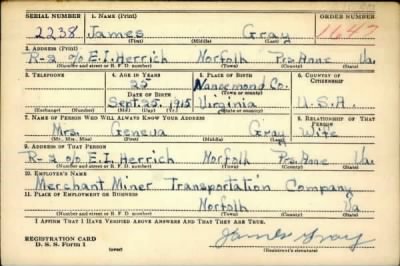 SERIAL NUMBER 1. NAME (Print) ORDER NUMBER
2238 James Gray 1647
(First) (Middle) (Last)
2. ADDRESS (Print)
R-2 c/o E.I. Herrich Norfolk Prs. Anne Va.
(Number and street or R. F. D. number) (Town) (County) (State)
3. TELEPHONE 4. AGE IN YEARS 5. PLACE OF BIRTH 6. COUNTRY OF CITIZENSHIP
25 Nansemond Co.
DATE OF BIRTH (Town or county)
Sept. 25, 1915 Virginia U.S.A.
(Exchange) (Number) (Mo.) (Day) (Yr.) (State or country)
7. NAME OF PERSON WHO WILL ALWAYS KNOW YOUR ADDRESS 8. RELATIONSHIP OF THAT PERSON
Mrs. Geneva Gray Wife
(Mr., Mrs., Miss) (First) (Middle) (Last)
9. ADDRESS OF THAT PERSON
R-2 c/o E.I. Herrich Norfolk Prs. Anne Va.
(Number and street or R. F. D. number) (Town) (County) (State)
10. EMPLOYER'S NAME
Merchant Miner Transportation Company
11. PLACE OF EMPLOYMENT OR BUSINESS
Norfolk Va
(Number and street or R. F. D. number) (Town) (County) (State)
I AFFIRM THAT I HAVE VERIFIED ABOVE ANSWERS AND THAT THEY ARE TRUE.
REGISTRATION CARD
D. S. S. Form 1 (over) James Gray
(Registrant's signature)